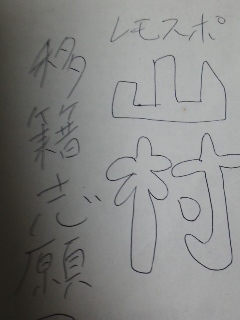 レモスポ
山村
移籍志願